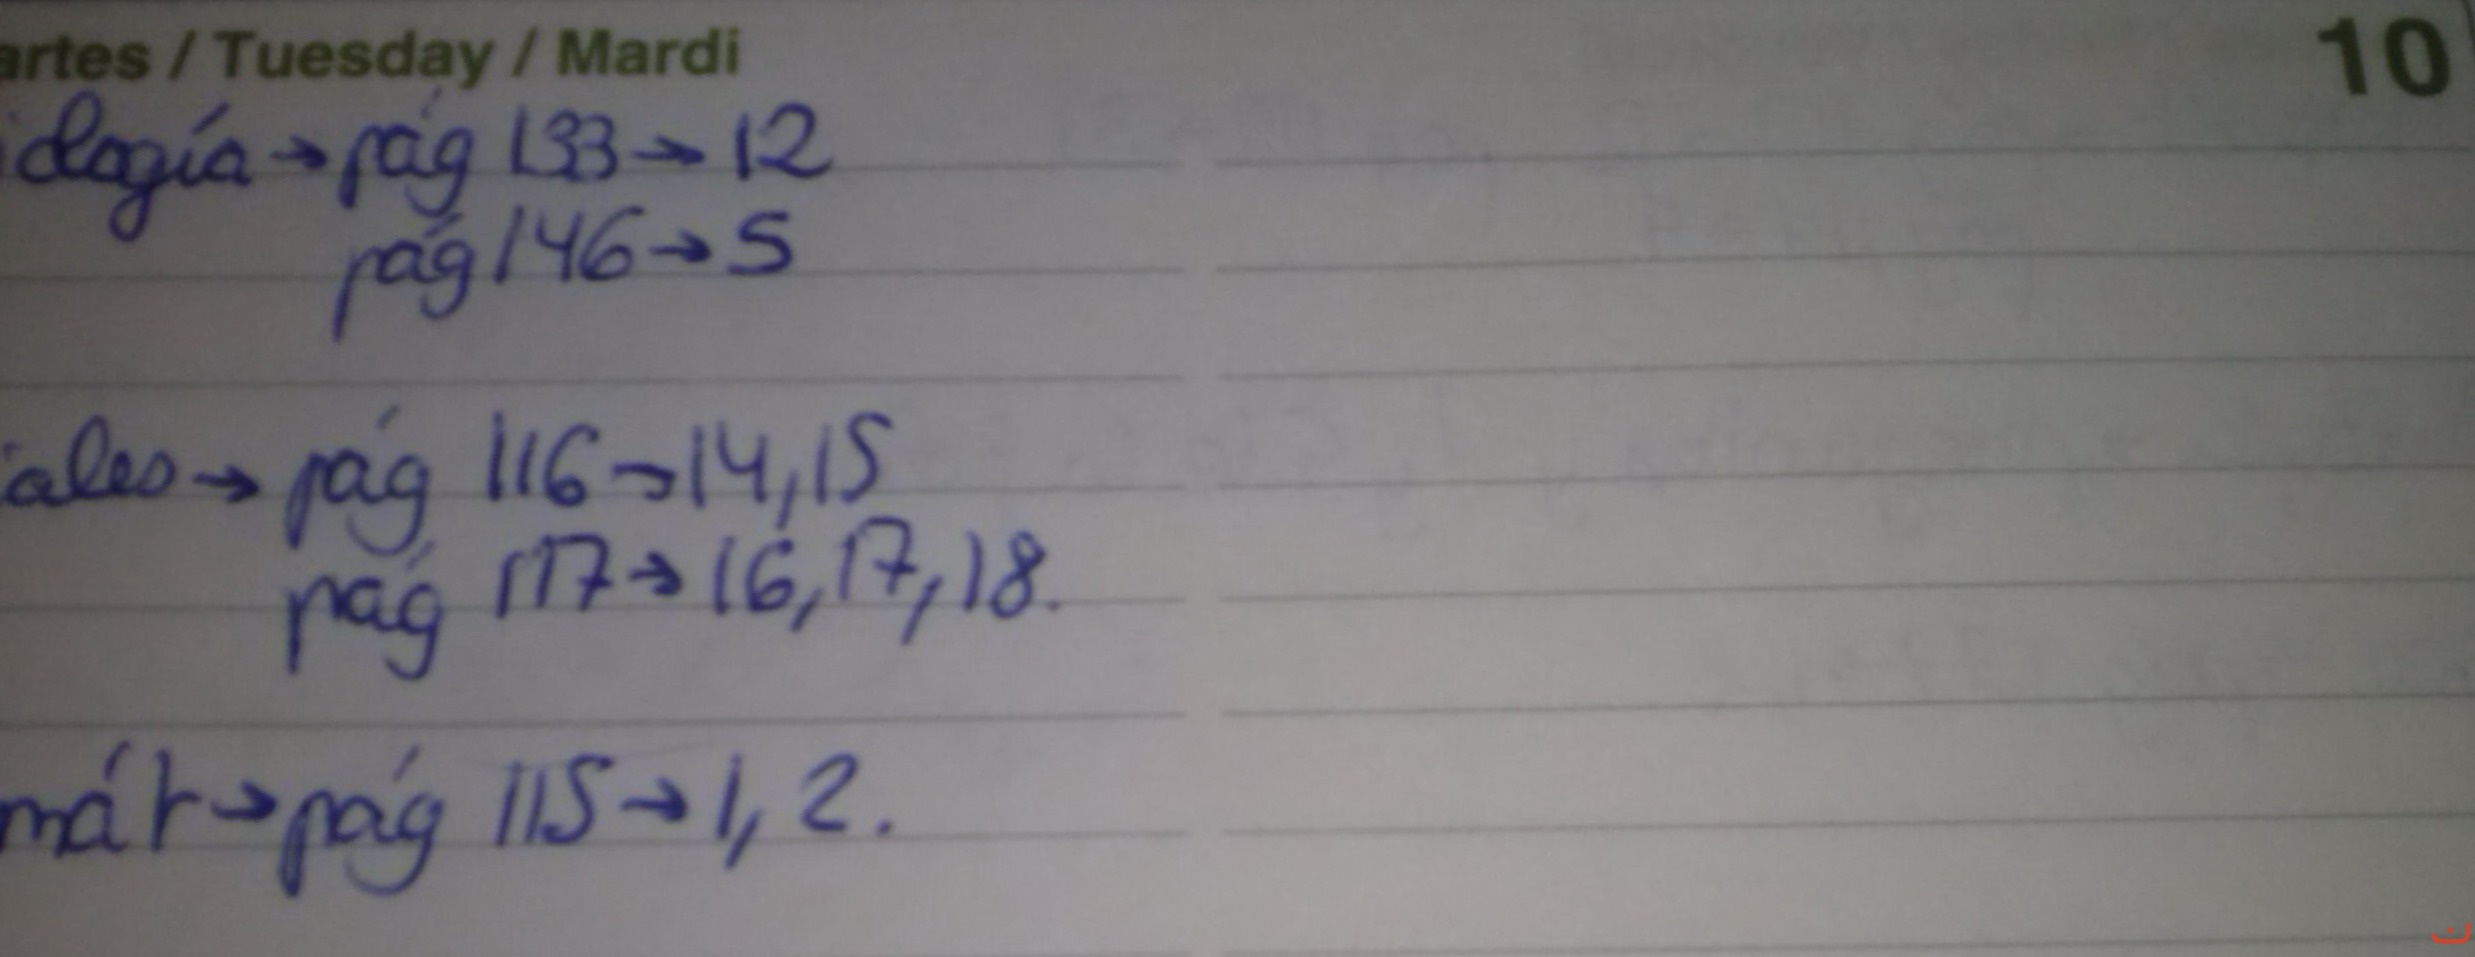 artes / Tuesday / Mardi 10
iología → pág 133 → 12
pág 146 → 5
iales → pág 116 → 14, 15
pág 117 → 16, 17, 18.
mát → pág 115 → 1, 2.